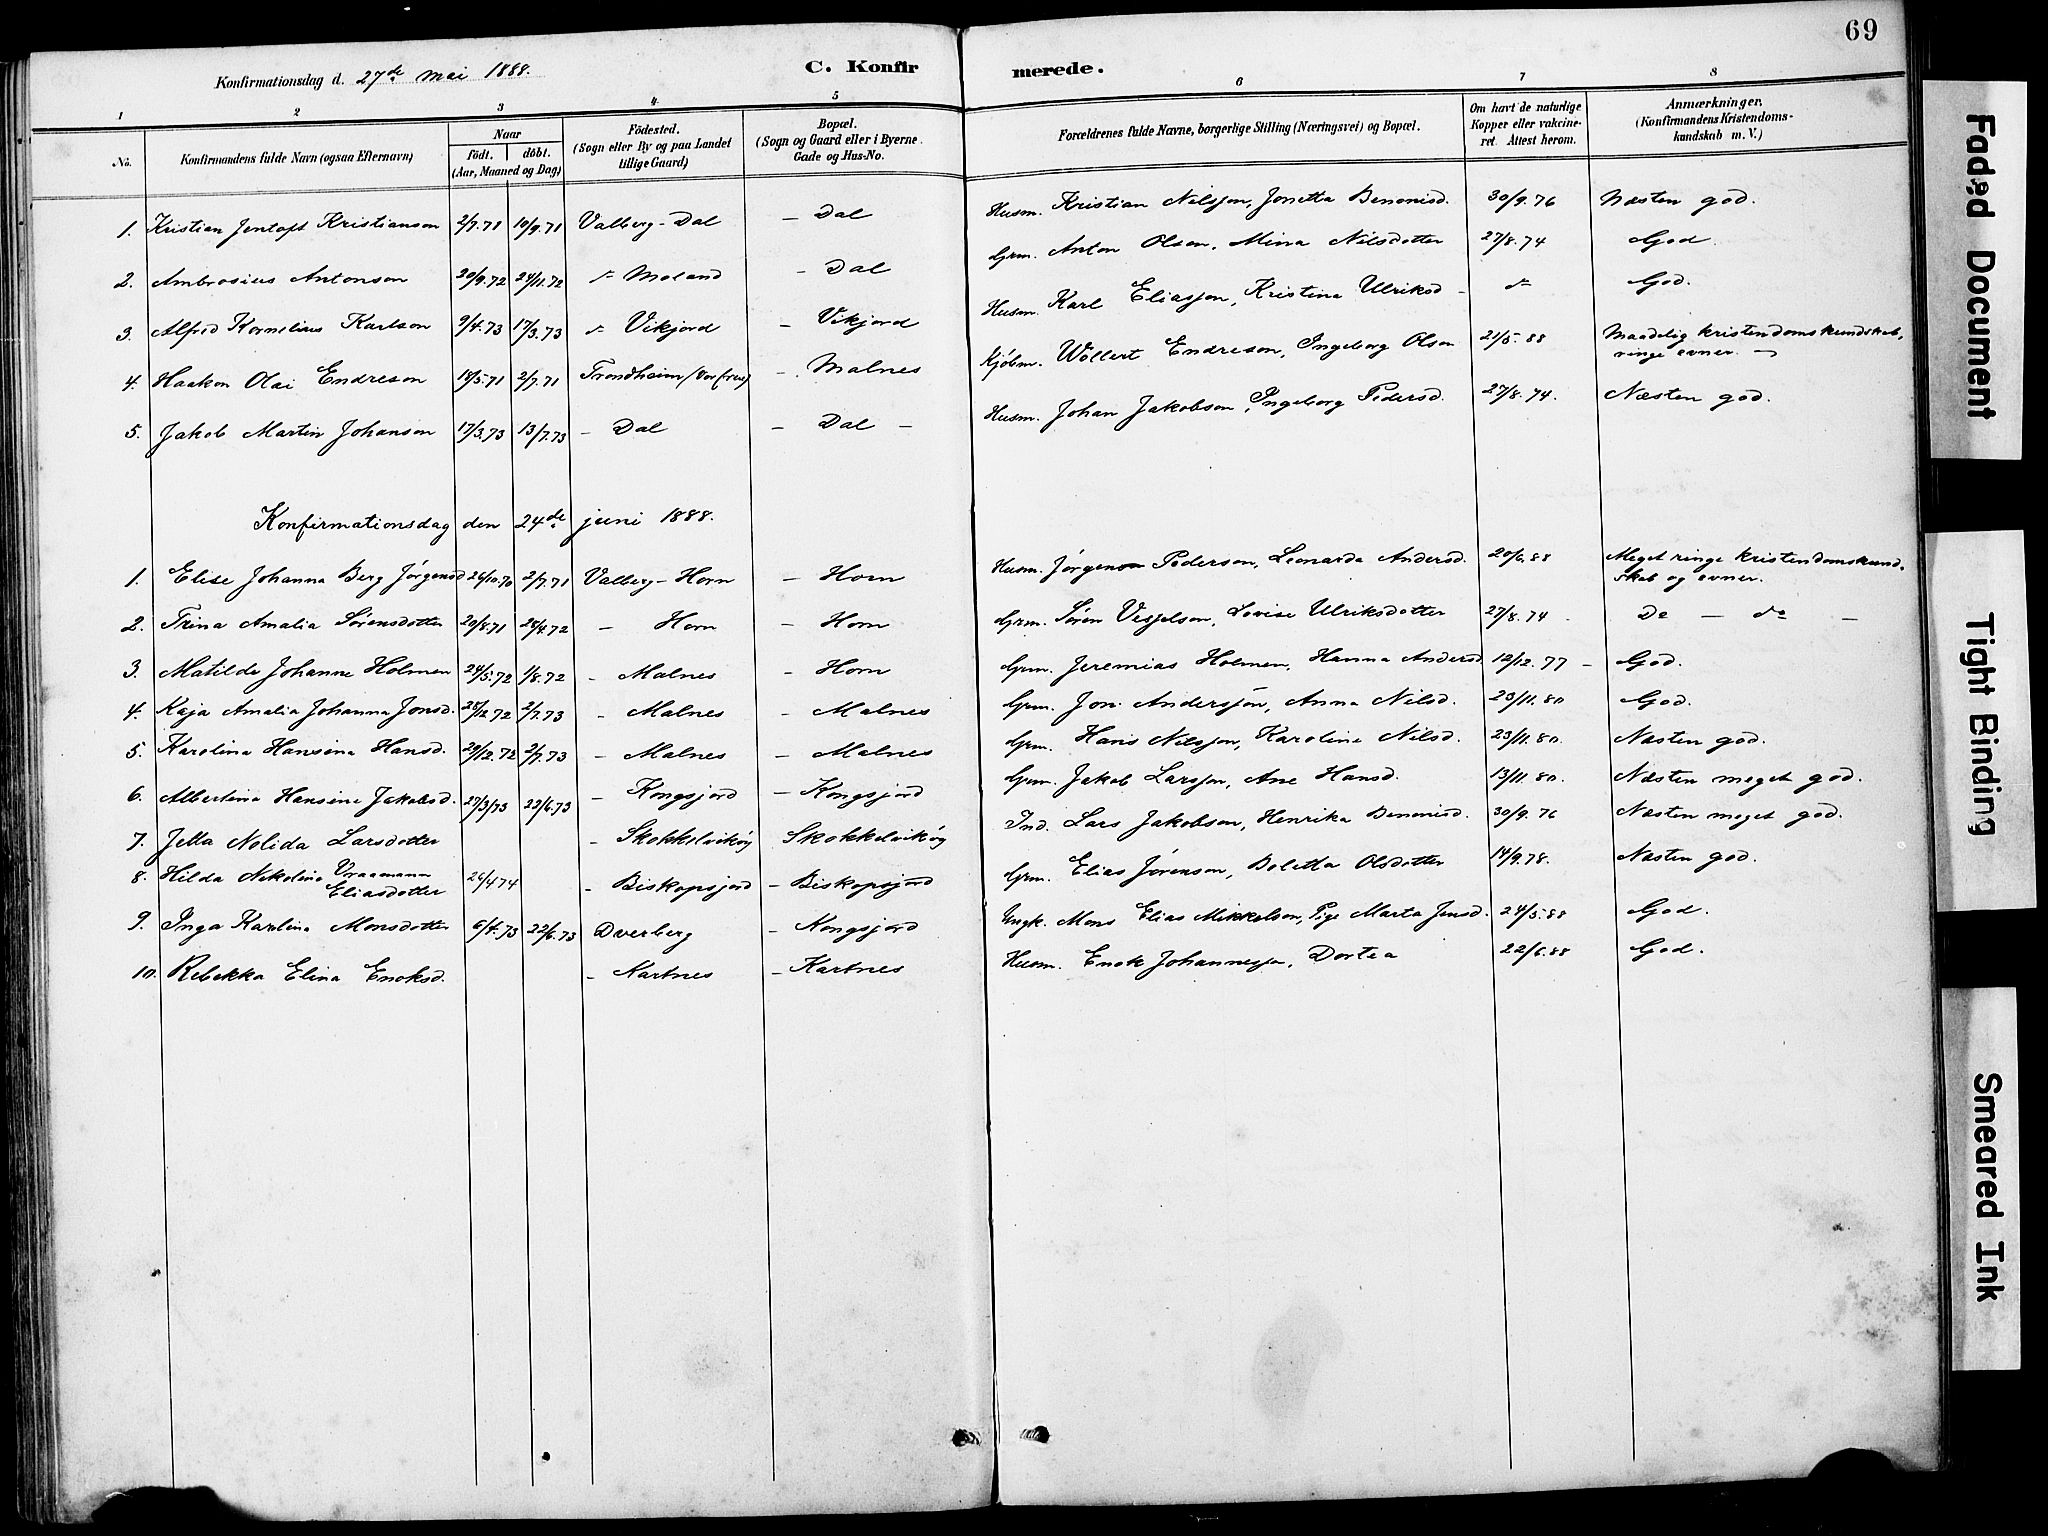 69
Konfirmationsdag d. 27de mai 1888. C. Konfirmerede.
1 2 3 4 5 6 7 8
No. Konfirmandens fulde Navn (ogsaa Efternavn) Naar födt. döbt. (Aar, Maaned og Dag) Födested. (Sogn eller By og paa Landet tillige Gaard) Bopæl. (Sogn og Gaard eller i Byerne Gade og Hus-No. Forældrenes fulde Navne, borgerlige Stilling (Næringsvei) og Bopæl. Om havt de naturlige Kopper eller vakcineret. Attest herom. Anmærkninger, (Konfirmandens Kristendomskundskab m. V.)
1. Kristian Jentoft Kristianson 2/7.71 10/9.71 Valberg - Dal - Dal Husm. Kristian Nilsson, Jonetta Benonisd. 30/9.76 Næsten god.
2. Ambrosius Antonson 20/9.72 24/11.72 Moland - Dal Grm. Anton Olsen, Mina Nilsdotter 27/8.74 God.
3. Alfred Kornelius Karlson 9/4.73 17/3.73 Vikjord - Vikjord Husm. Karl Eliasson, Kristina Ulriksd - do God.
4. Haakon Olai Endreson 2/7.71 Trondheim - Malnes Kjöbm. Wollert Endreson, Ingeborg Olsen 21/5.88 Maadelig kristendomskundskab, ringe evner.
5. Jakob Martin Johanson 17/3.73 13/7.73 - Dal - Dal - Husm. Johan Jakobson, Ingeborg Pedersd. 27/8.74. Næsten god.
Konfirmationsdag den 24de juni 1888.
1. Elise Johanna Berg Jørgensd 26/10.70 2/7.71 Valberg - Horn - Horn Husm. Jørgen Pederson, Leonarda Andersd. 20/6.88 Meget ringe kristendomskundskab og evner.
2. Trina Amalia Sørensdotter 20/8.71 28/4.72 - Horn - Horn Grm. Søren Lovise Ulriksdotter 27/8.74 - Do - do -
3. Matilde Johanne Holmen 24/5.72 1/8.72 - Malnes - Horn Grm. Jeremias Holmen, Hanna Andersd. 12/12.77 - God.
4. Kaja Amalia Johanna Jonsd. 28/12.72 2/7.73 - Malnes - Malnes Grm. Jon Andersson, Anna Nilsd. 23/11.80 God.
5. Karolina Hansina Hansd. 29/12.72 2/7.73 - Malnes - Malnes Grm. Hans Nilsson, Karoline Nilsd. 23/11.80. Næsten god.
6. Albertina Hansine Jakobsd. 27/3/73 22/6.73 - Kongsjord - Kongsjord Grm. Jakob Larsson, Ane Hansd. 13/11.80. Næsten meget god.
7. Jetta Nolida Larsdotter - Skokkelvikög Skokkelvikög Ind. Lars Jakobson, Henrika Benonisd. 30/9.76 Næsten meget god.
8. Hilda Nikoline Vraamann Eliasdotter 26/4 74 - Biskopsjord - Biskopsjord Grm. Elias Jørenson, Boletta Olsdotter 14/9.78. Næsten god.
9. Inga Karolina Monsdotter 6/4.73 22/6.73 Dverberg - Kongsjord Ungk. Mons Elias Mikkelson, Pige Marta Jensd. 24/5.88 God.
10. Rebekka Elina Enoksd. - Kartnes - Kartnes Husm. Enok Johanness., Dortea 22/6.88 God.
Faded Document
Tight Binding
Smeared Ink